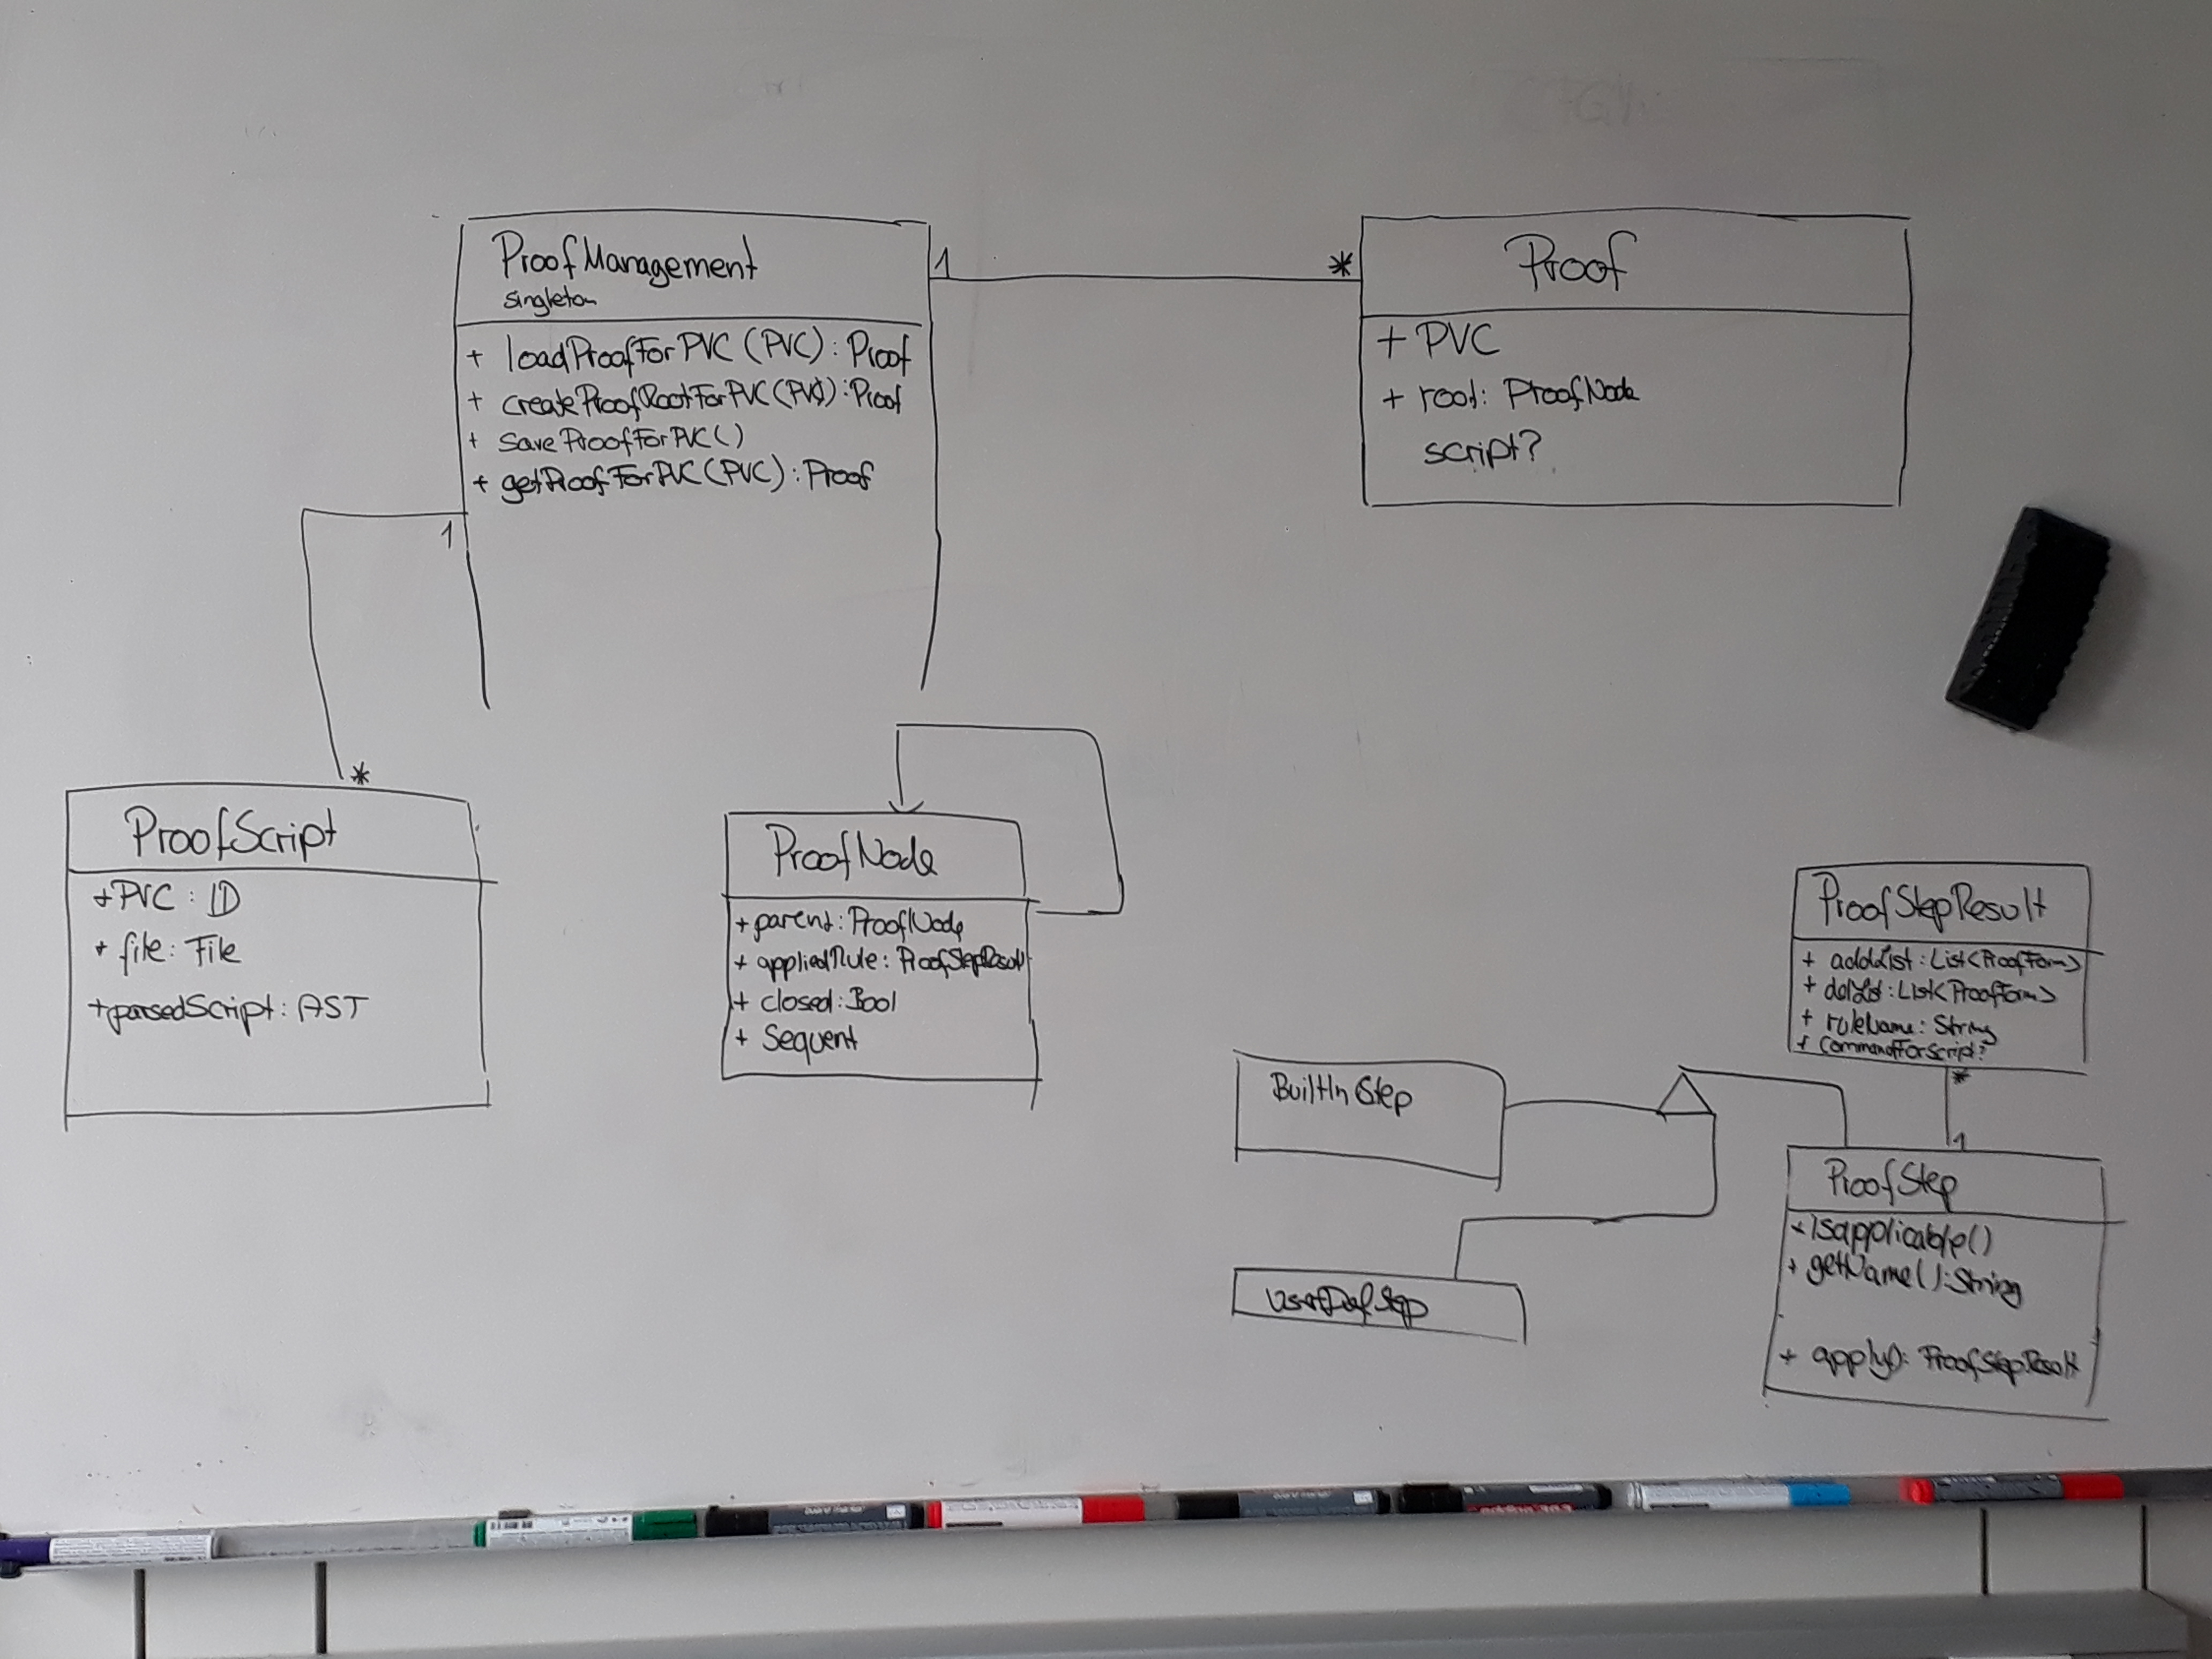 ProofManagement
singleton
+ loadProofForPVC (PVC) : Proof
+ createProofRootForPVC (PVC) : Proof
+ saveProofForPVC ()
+ getProofForPVC (PVC) : Proof
1
*
Proof
+ PVC
+ root: ProofNode
script?
1
*
ProofScript
+PVC : ID
+ file: File
+parsedScript: AST
ProofNode
+ parent: ProofNode
+ appliedRule: ProofStepResult
+ closed: Bool
+ Sequent
ProofStepResult
+ addList : List<ProofForm>
+ delList : List<ProofForm>
+ ruleName: String
+ CommandForScript?
*
1
BuiltInStep
UserDefStep
ProofStep
+ Isapplicable()
+ getName(): String
+ apply(): ProofStepResult